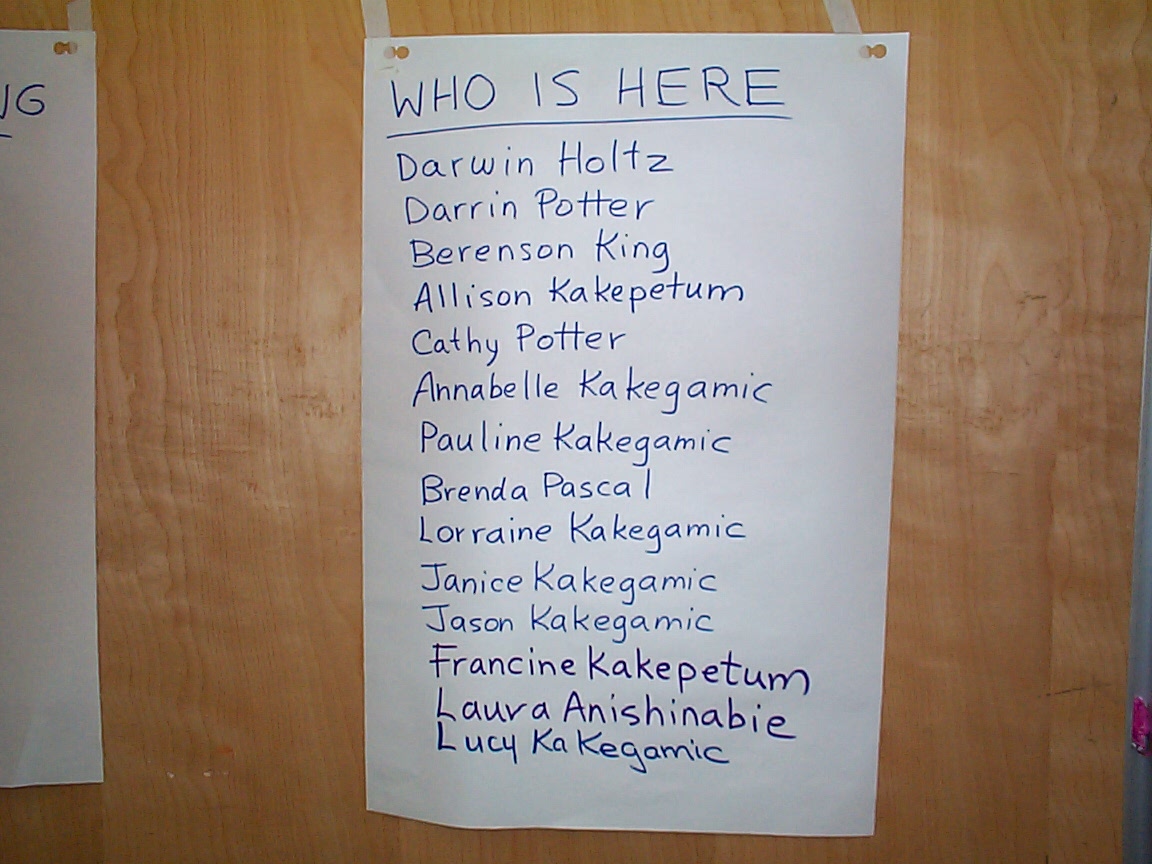 WHO IS HERE
Darwin Holtz
Darrin Potter
Berenson King
Allison Kakepetum
Cathy Potter
Annabelle Kakegamic
Pauline Kakegamic
Brenda Pascal
Lorraine Kakegamic
Janice Kakegamic
Jason Kakegamic
Francine Kakepetum
Laura Anishinabie
Lucy Kakegamic